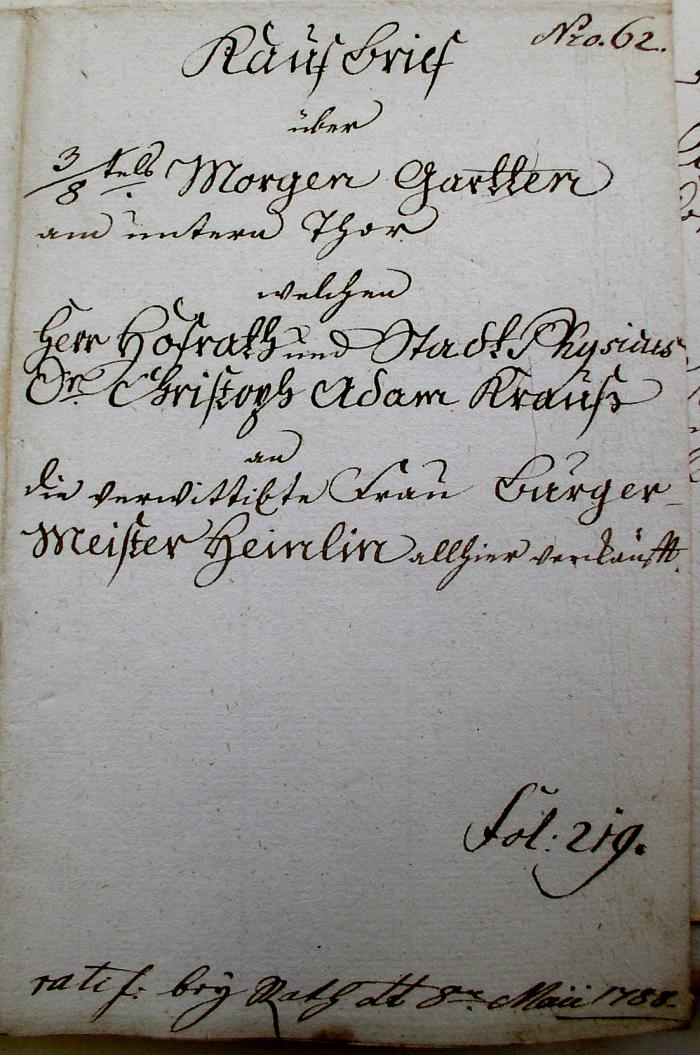 Nro. 62.
Kauf Brief
über
3/8 tels Morgen Gartten
am untern Thor
welchen
Herr Hofrath und Stadt Physicus
Dr. Christoph Adam Krauß
an
die verwittibte Frau Bürger-
Meister Heinlin allhier verkaufft.
Fol: 219.
ratif: bey Rath dt 8ten Maii 1788.